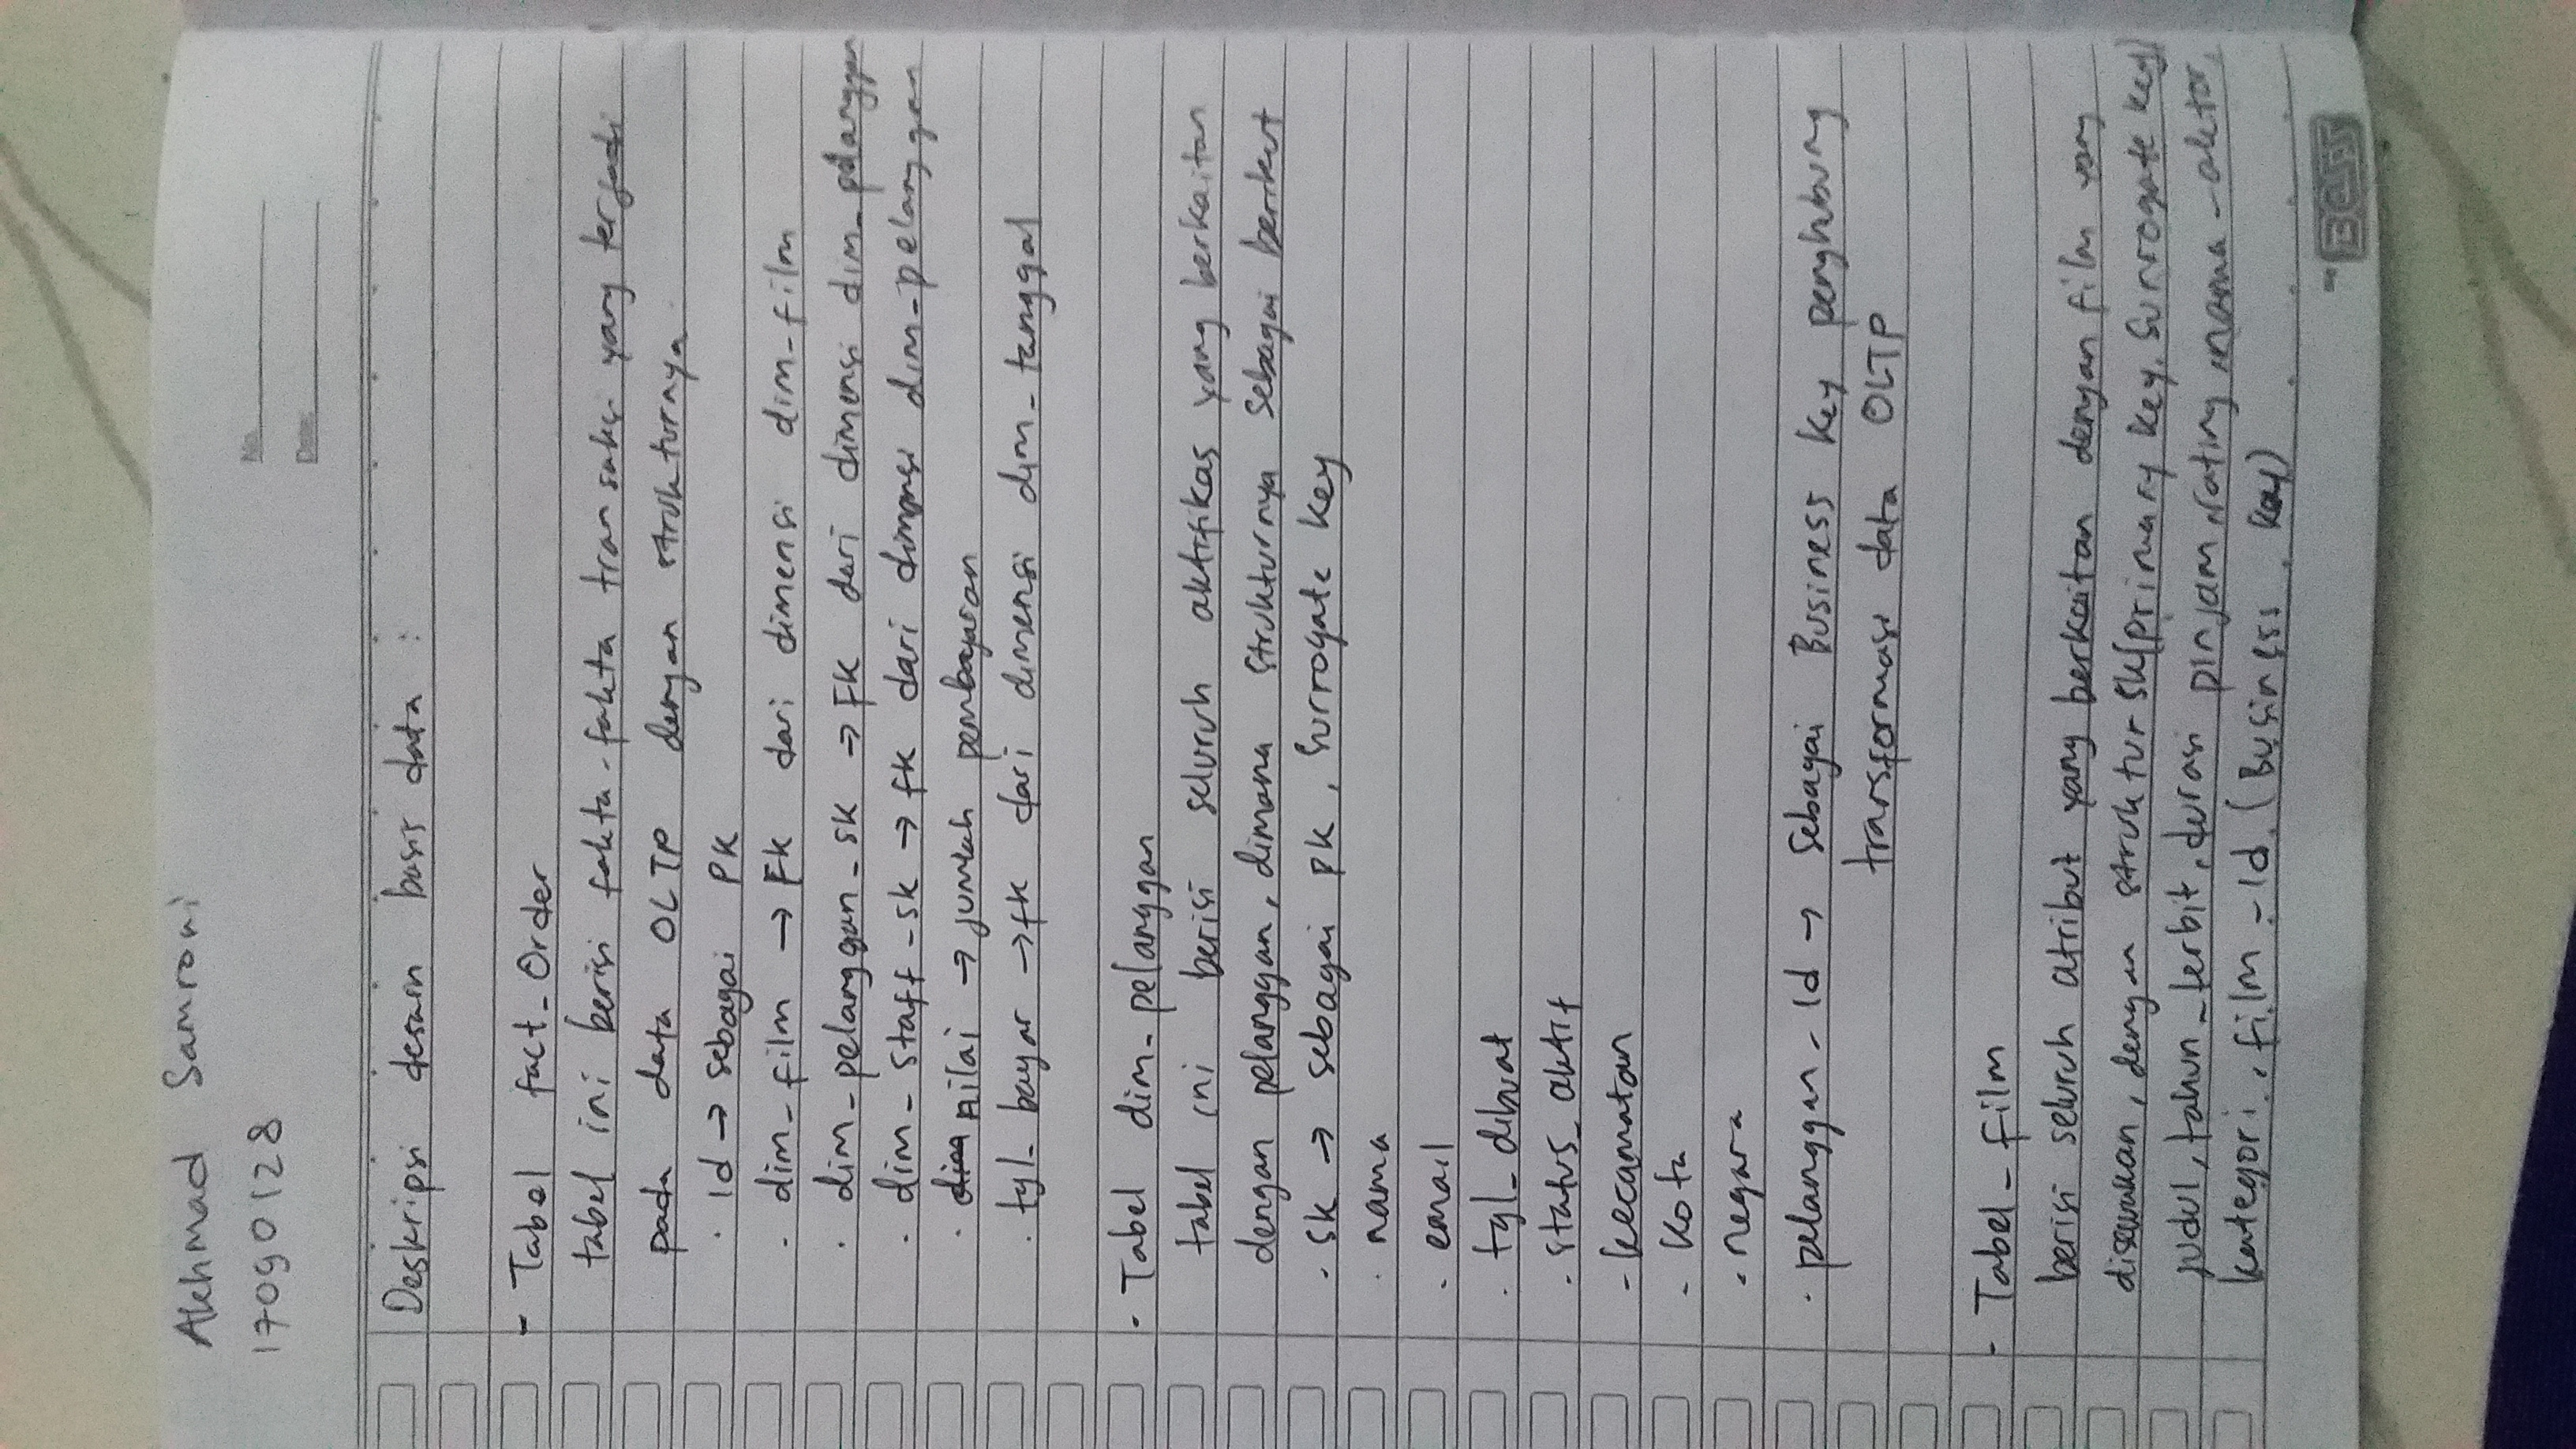 Akhmad Samroni
17090128
No.
Date.
Deskripsi desain basis data :
- Tabel fact_Order
tabel ini berisi fakta-fakta transaksi yang terjadi
pada data OLTP dengan strukturnya
. id → sebagai PK
. dim-film → FK dari dimensi dim-film
. dim-pelanggan-sk → FK dari dimensi dim_pelanggan
. dim-staff-sk → fk dari dimensi dim-pelanggan
. nilai → jumlah pembayaran
. tgl-bayar → fk dari dimensi dim-tanggal
. Tabel dim-pelanggan
tabel ini berisi seluruh aktifikas yang berkaitan
dengan pelanggan, dimana strukturnya sebagai berikut
. sk → sebagai pk, Surrogate key
. nama
. email
. tgl_dibuat
. status_aktif
- kecamatan
- kota
. negara
. pelanggan-id → sebagai Business key penghubung
transformasi data OLTP
- Tabel-film
berisi seluruh atribut yang berkaitan dengan film yang
disewakan, dengan struktur sk(primary key, Surrogate key)
judul, tahun_terbit, durasi pinjam, rating, nama-aktor,
kategori, film-id (Business key)
BOSS